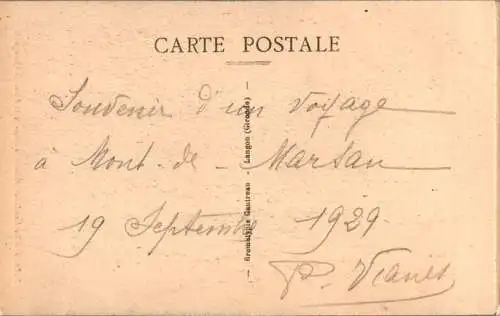 CARTE POSTALE
Souvenir d'un voyage
à Mont-de-Marsan
19 Septembre 1929
P.
Gautreau - Langon (Gironde)